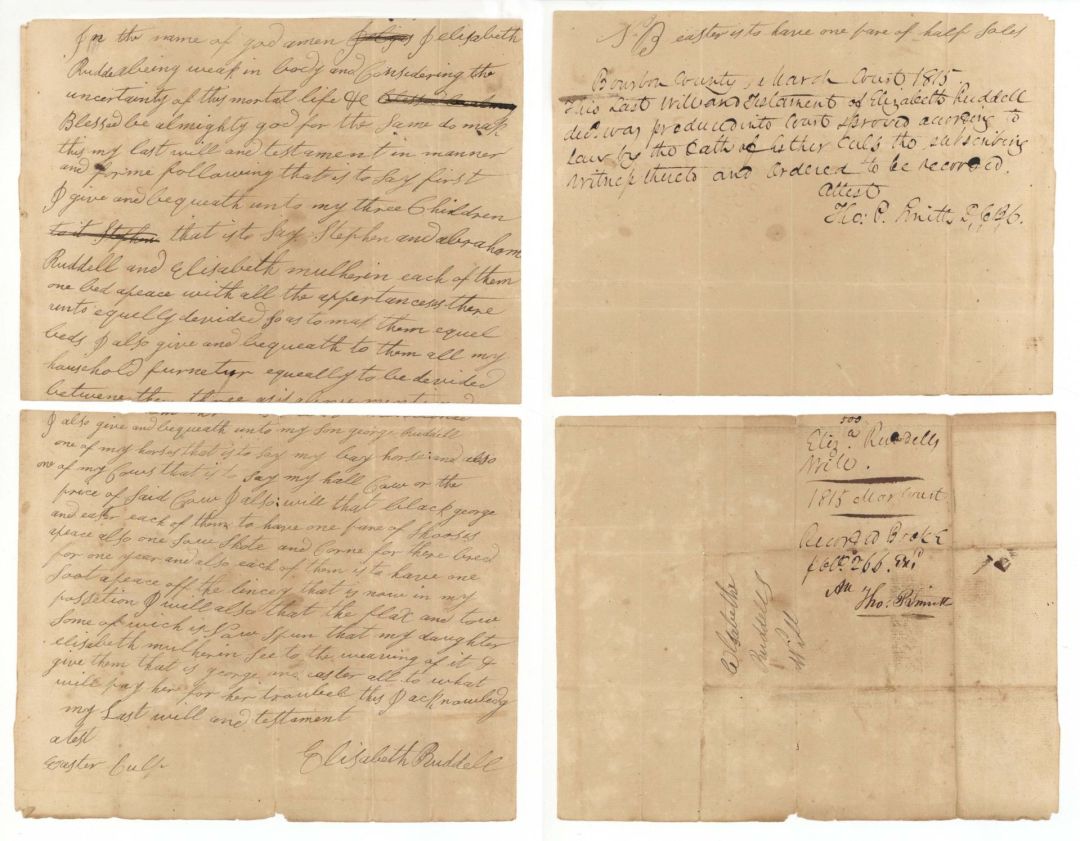 In the name of god amen I elisabeth
Ruddell being weak in body and Considering the
uncertainty of this mortal life &c
Blessed be almighty god for the Same do mak
this my last will and testament in manner
and forme following that is to Say first
I give and bequeath unto my three Children
to it Stephen that is to Say Stephen and abraham
Ruddell and Elisabeth mulherin each of them
one bed apeace with all the appertances there
unto equelly devided so as to mak them equel
beds I also give and bequeath to them all my
household furnetur equeally to be devided
betwene them three as is above mentioned
I also give and bequeath unto my Son george Ruddell
one of my horses that is to Say my bay horse and also
one of my Cows that is to Say my hall Cow or the
price of Said Cow I also will that black george
and easter each of them to have one pare of Shooses
apeace also one Sow Shote and Corne for there bred
for one year and also each of them is to have one
Soot apeace off the lincey that is now in my
possetion I will also that the flax and tow
Some of wich is Now Spun that my daughter
elisabeth mulherin See to the weaving of it &
give them that is george and easter all to what
will pay here for her troubel this I acknowledg
my Last will and testament
atest
Easter Culp Elisabeth Ruddell
N B easter is to have one pare of half Soles
Bourbon County, March Court 1815
This Last Will and Testament of Elizabeth Ruddell
decd. was produced into Court & proved according to
law by the Oath of Esther Culp the subscribing
witness thereto and Ordered to be recorded.
Attest
Tho: P. Smith
Eliza. Ruddells
Will.
1815 Mar Court
Record Book E
266. Exd
Att
Tho: P. Smith
Elisabethe
Ruddells
Will